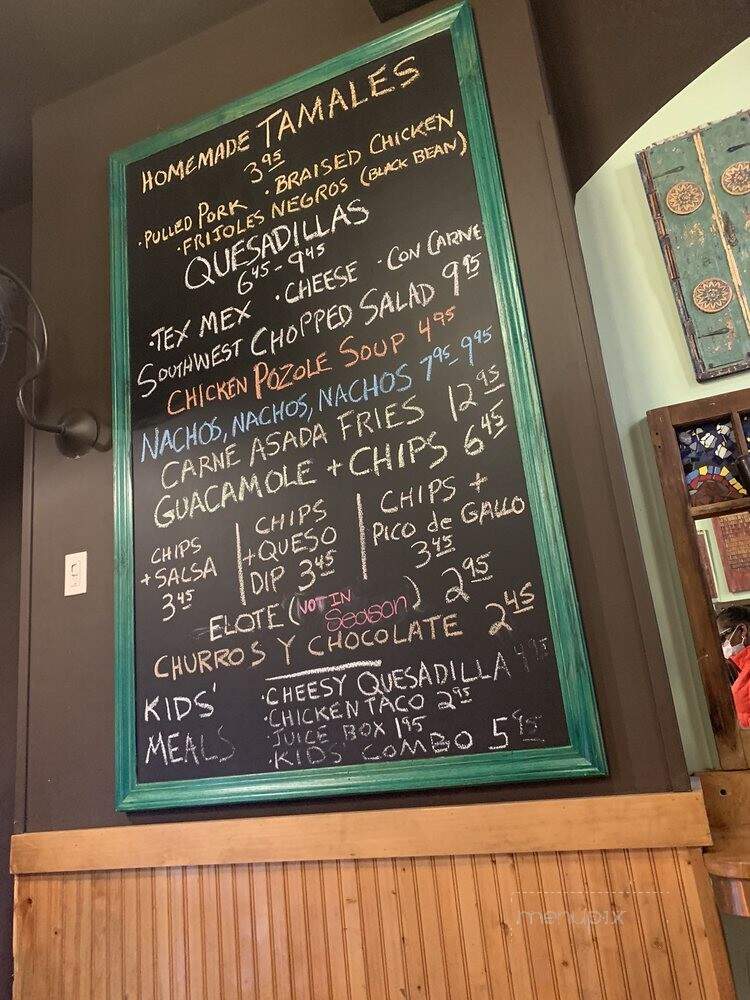 HOMEMADE TAMALES
3.95
·PULLED PORK ·BRAISED CHICKEN
·FRIJOLES NEGROS (BLACK BEAN)
QUESADILLAS
6.45 - 9.45
·TEX MEX ·CHEESE ·CON CARNE
SOUTHWEST CHOPPED SALAD 9.95
CHICKEN POZOLE SOUP 4.95
NACHOS, NACHOS, NACHOS 7.95 - 9.95
CARNE ASADA FRIES 12.95
GUACAMOLE + CHIPS 6.45
CHIPS
+SALSA
3.45
CHIPS
+QUESO
DIP 3.45
CHIPS +
PICO de GALLO
3.45
ELOTE (NOT IN Season) 2.95
CHURROS Y CHOCOLATE 2.45
KIDS'
MEALS
·CHEESY QUESADILLA
·CHICKEN TACO 2.95
·JUICE BOX 1.95
·KIDS' COMBO 5.95
menupix